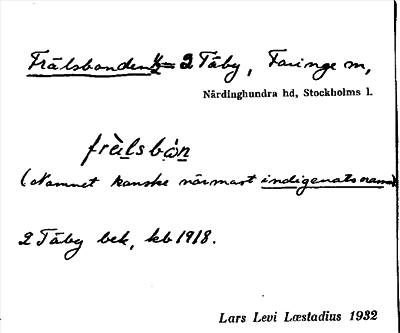 Frälsbonden = 2 Täby, Faringe sn,
Närdinghundra hd, Stockholms l.
frä̀lsbón
(Namnet kanske närmast indigenatsnamn)
2 Täby bek, kb 1918.
Lars Levi Læstadius 1932